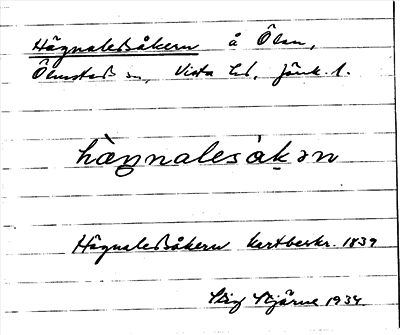 Hägnalesåkern å Ölan,
Ölmstad sn, Vista hd, Jönk. l.
hàŋnalesàkən
Hägnalesåkern Kartbeskr. 1839
Stig Stjärne 1934.